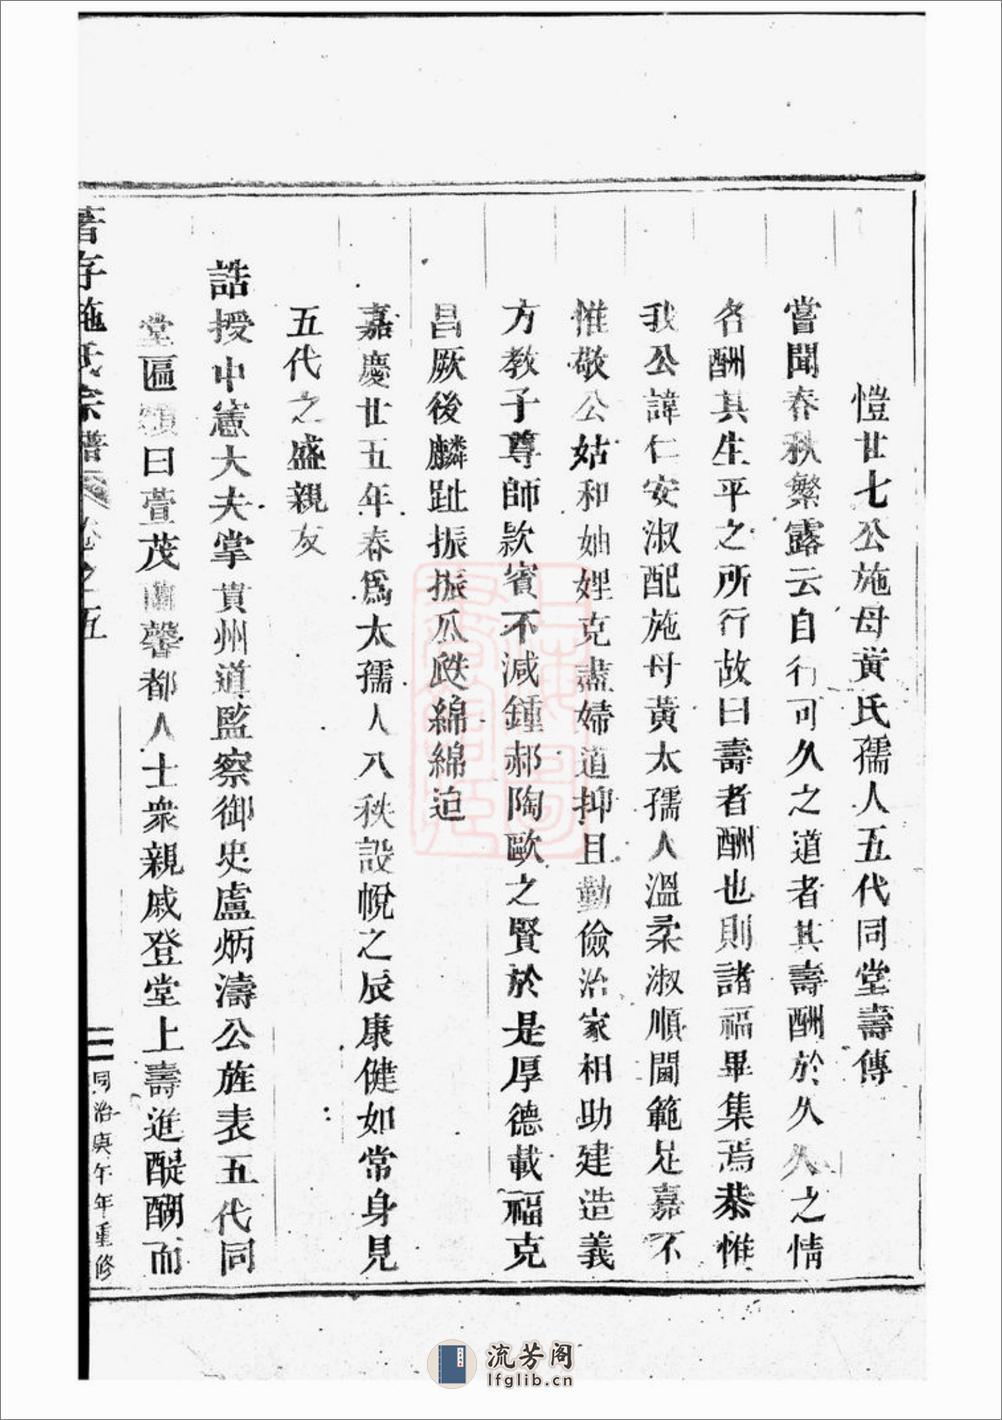 愷廿七公施母黃氏孺人五代同堂壽傳
嘗聞春秋繁露云自行可久之道者其壽酬於久久之情
名酬其生平之所行故曰壽者酬也則諸福畢集焉恭惟
我公諱仁安淑配施母黃太孺人溫柔淑順閫範足嘉不
惟敬公姑和妯娌克盡婦道抑且勤儉治家相助建造義
方教子尊師欵賓不減鍾郝陶歐之賢於是厚德載福克
昌厥後麟趾振振瓜瓞綿綿迨
嘉慶廿五年春爲太孺人八秩設帨之辰康健如常身見
五代之盛親友
誥授中憲大夫掌貴州道監察御史盧炳濤公旌表五代同
堂匾頌曰萱茂蘭馨都人士衆親戚登堂上壽進醍醐而
著存施氏宗譜 卷之五
二 同治庚午年重修
流芳阁
lfglib.cn